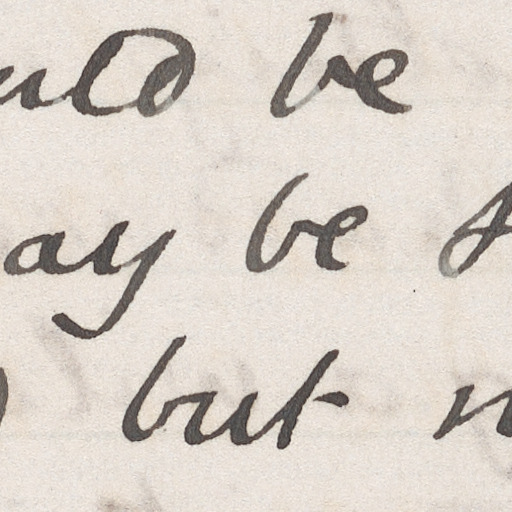 uld be
ay be
but